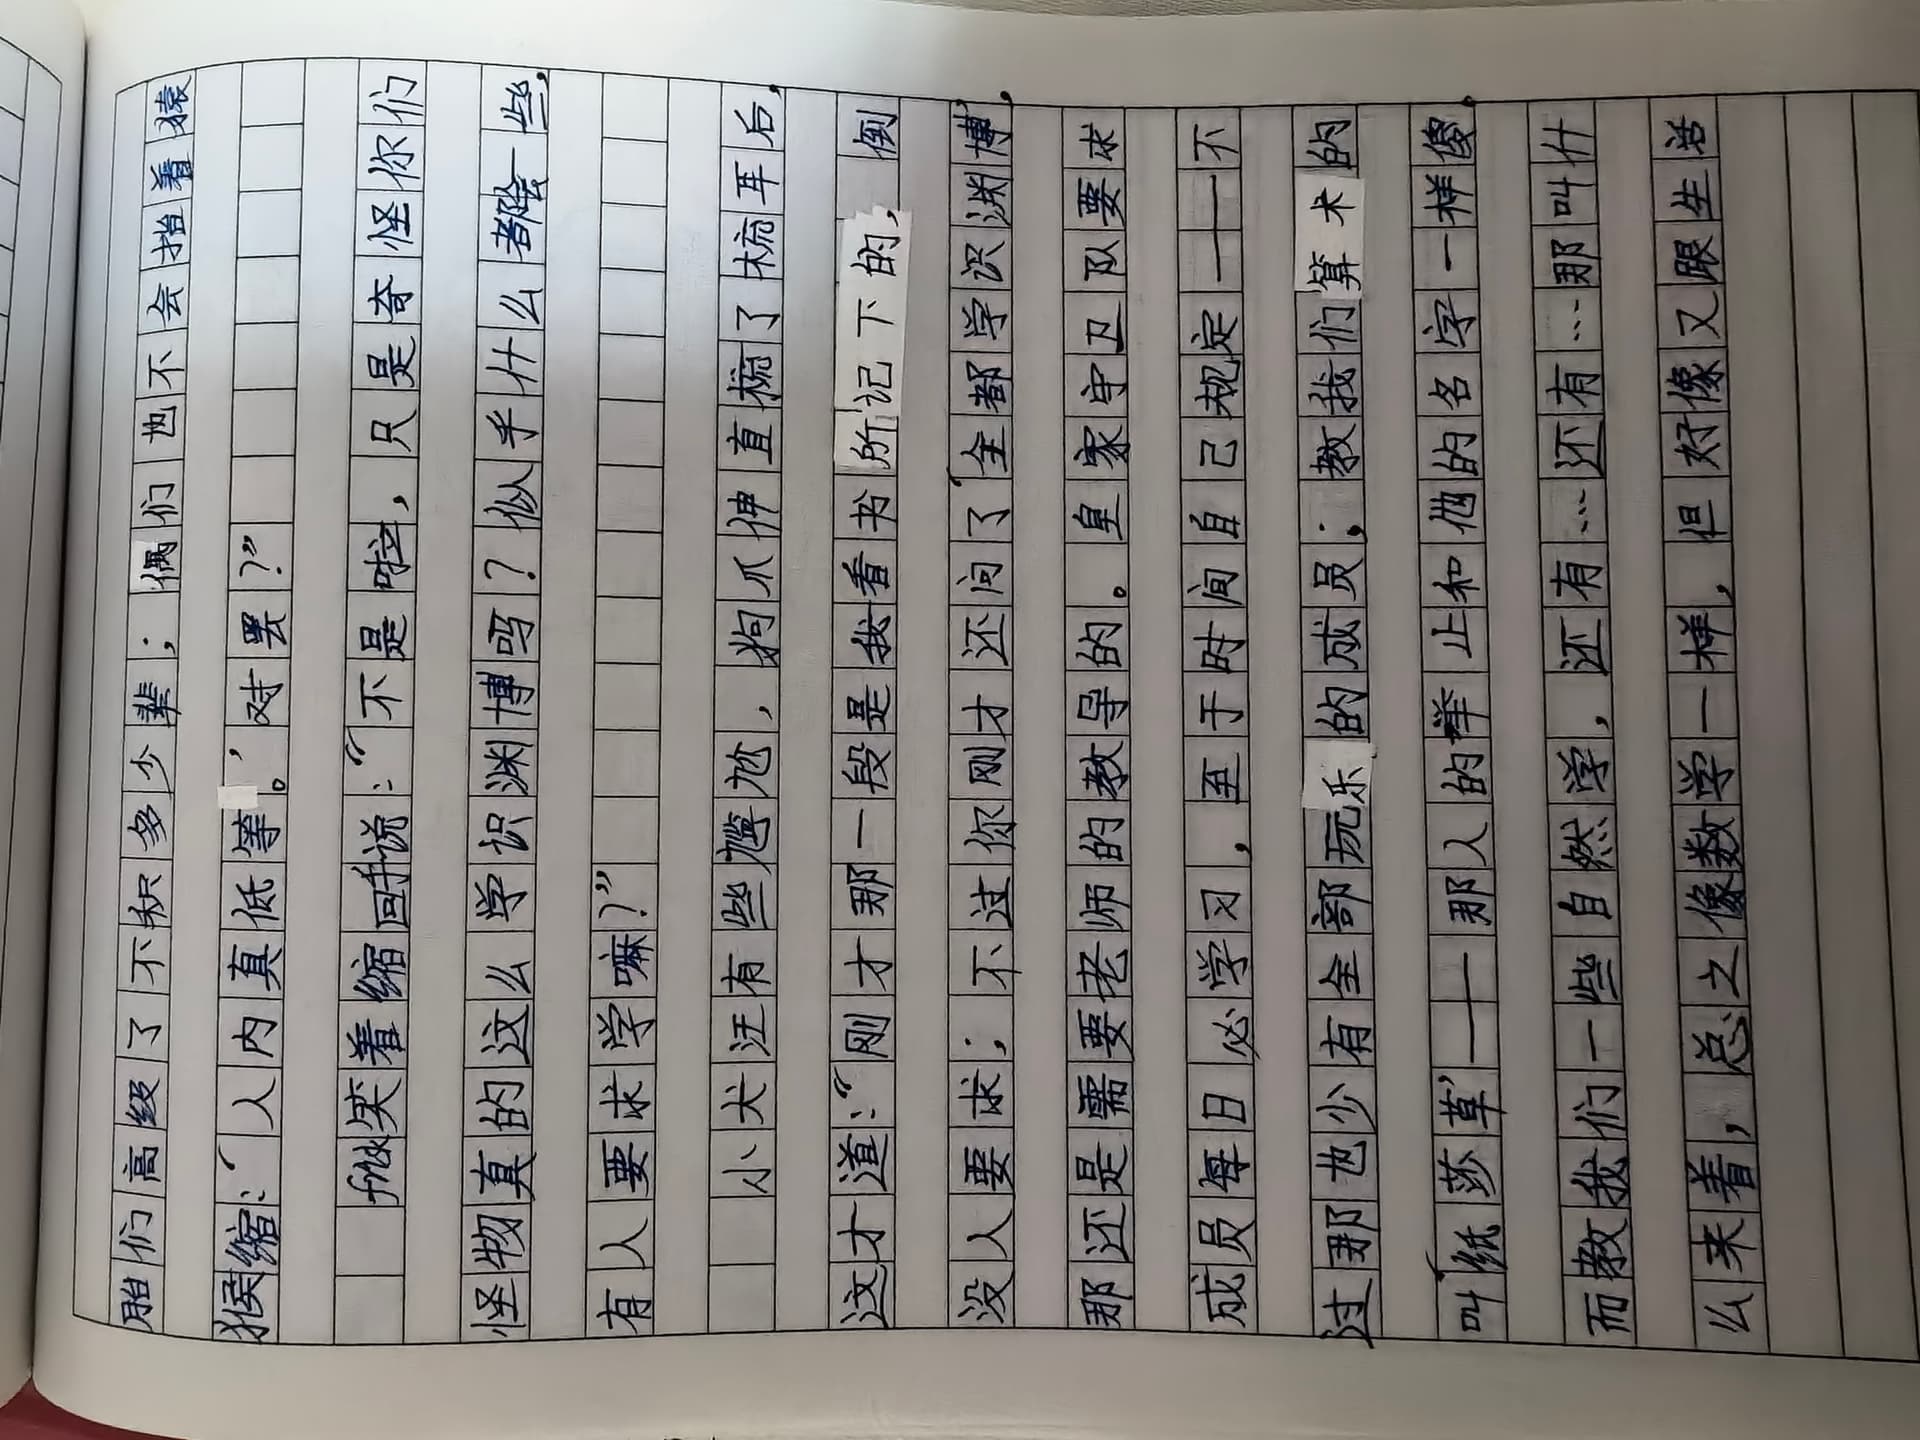 胎们高级了不积多少辈；偶们也不会抬着猿
猴缩：‘人内真低等。’对罢？”
笑着缩回手说：“不是啦，只是奇怪你们
怪物真的这么学识渊博吗？似乎什么都会一些，
有人要求学嘛？”
小犬汪有些尴尬，狗爪伸直梳了梳耳后，
这才道：“刚才那一段是我看书所记下的，倒
没人要求；不过你刚才还问了‘全都学识渊博’，
那还是需要老师的教导的。皇家守卫队要求
成员每日必学习，至于时间自己规定——不
过那也少有全部玩乐的成员；教我们算术的
叫‘纸莎草’——那人的举止和他的名字一样傻。
而教我们一些自然学，还有…还有…那叫什
么来着，总之像数学一样，但好像又跟生活